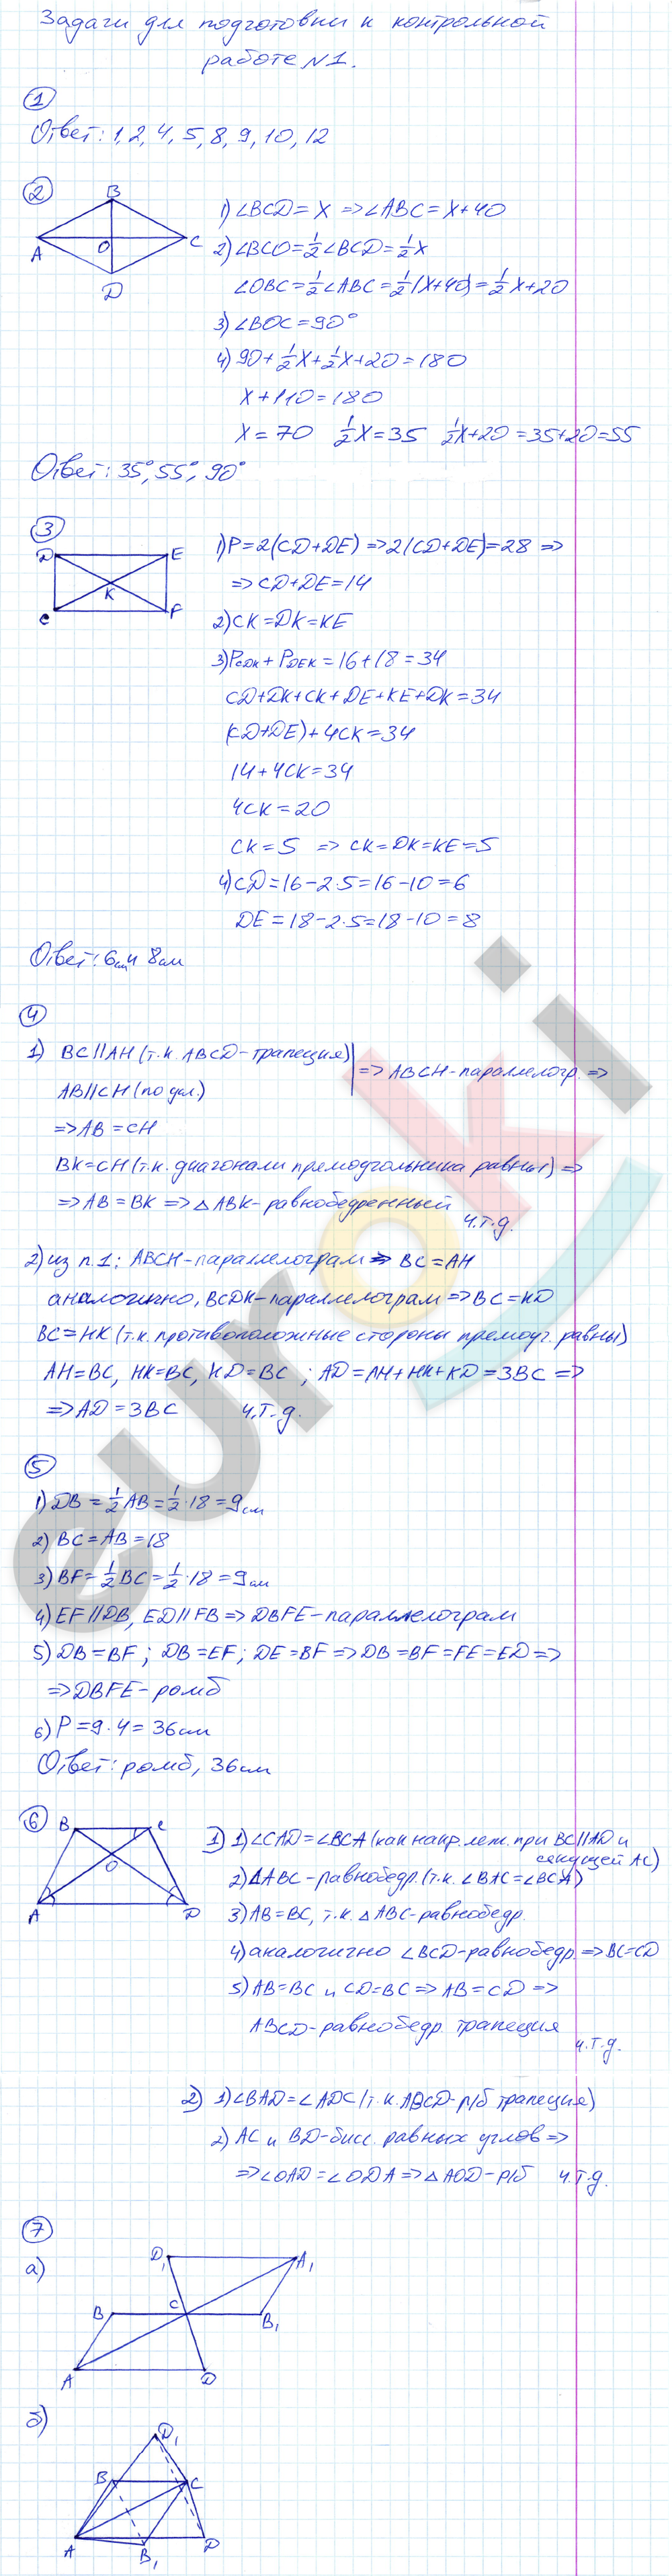 Задачи для подготовки к контрольной
работе №1.
1
Ответ: 1, 2, 4, 5, 8, 9, 10, 12
2
B
A
O
C
D
1) ∠BCD = x => ∠ABC = x+40
2) ∠BCO = 1/2 ∠BCD = 1/2 x
∠OBC = 1/2 ∠ABC = 1/2 (x+40) = 1/2 x+20
3) ∠BOC = 90°
4) 90 + 1/2 x + 1/2 x + 20 = 180
x + 110 = 180
x = 70 1/2 x = 35 1/2 x + 20 = 35+20 = 55
Ответ: 35°, 55°, 90°
3
D
E
K
C
F
1) P = 2(CD+DE) => 2(CD+DE) = 28 =>
=> CD + DE = 14
2) CK = DK = KE
3) PCDK + PDEK = 16 + 18 = 34
CD + DK + CK + DE + KE + DK = 34
(CD+DE) + 4CK = 34
14 + 4CK = 34
4CK = 20
CK = 5 => CK = DK = KE = 5
4) CD = 16 - 2·5 = 16 - 10 = 6
DE = 18 - 2·5 = 18 - 10 = 8
Ответ: 6см и 8см
4
1) BC || AH (т.к. ABCD - трапеция)
=> ABCH - параллелогр. =>
AB || CH (по усл.)
=> AB = CH
BK = CH (т.к. диагонали прямоугольника равны) =>
=> AB = BK => △ABK - равнобедренный
ч.т.д.
2) из п.1: ABCH - параллелограм => BC = AH
аналогично, BCDK - параллелограм => BC = KD
BC = HK (т.к. противоположные стороны прямоуг. равны)
AH = BC, HK = BC, KD = BC ; AD = AH + HK + KD = 3BC =>
=> AD = 3BC ч.т.д.
5
1) DB = 1/2 AB = 1/2 · 18 = 9см
2) BC = AB = 18
3) BF = 1/2 BC = 1/2 · 18 = 9см
4) EF || DB, ED || FB => DBFE - параллелограм
5) DB = BF ; DB = EF ; DE = BF => DB = BF = FE = ED =>
=> DBFE - ромб
6) P = 9 · 4 = 36см
Ответ: ромб, 36см
6
B
C
O
A
D
1) 1) ∠CAD = ∠BCA (как накр. леж. при BC || AD и
секущей AC)
2) △ABC - равнобедр. (т.к. ∠BAC = ∠BCA)
3) AB = BC, т.к. △ABC - равнобедр.
4) аналогично ∠BCD - равнобедр. => BC = CD
5) AB = BC и CD = BC => AB = CD =>
ABCD - равнобедр. трапеция
ч.т.д.
2) 1) ∠BAD = ∠ADC (т.к. ABCD - р/б трапеция)
2) AC и BD - бисс. равных углов =>
=> ∠OAD = ∠ODA => △AOD - р/б ч.т.д.
7
а)
D1
A1
B
C
B1
A
D
б)
D1
B
C
A
B1
D
euroki